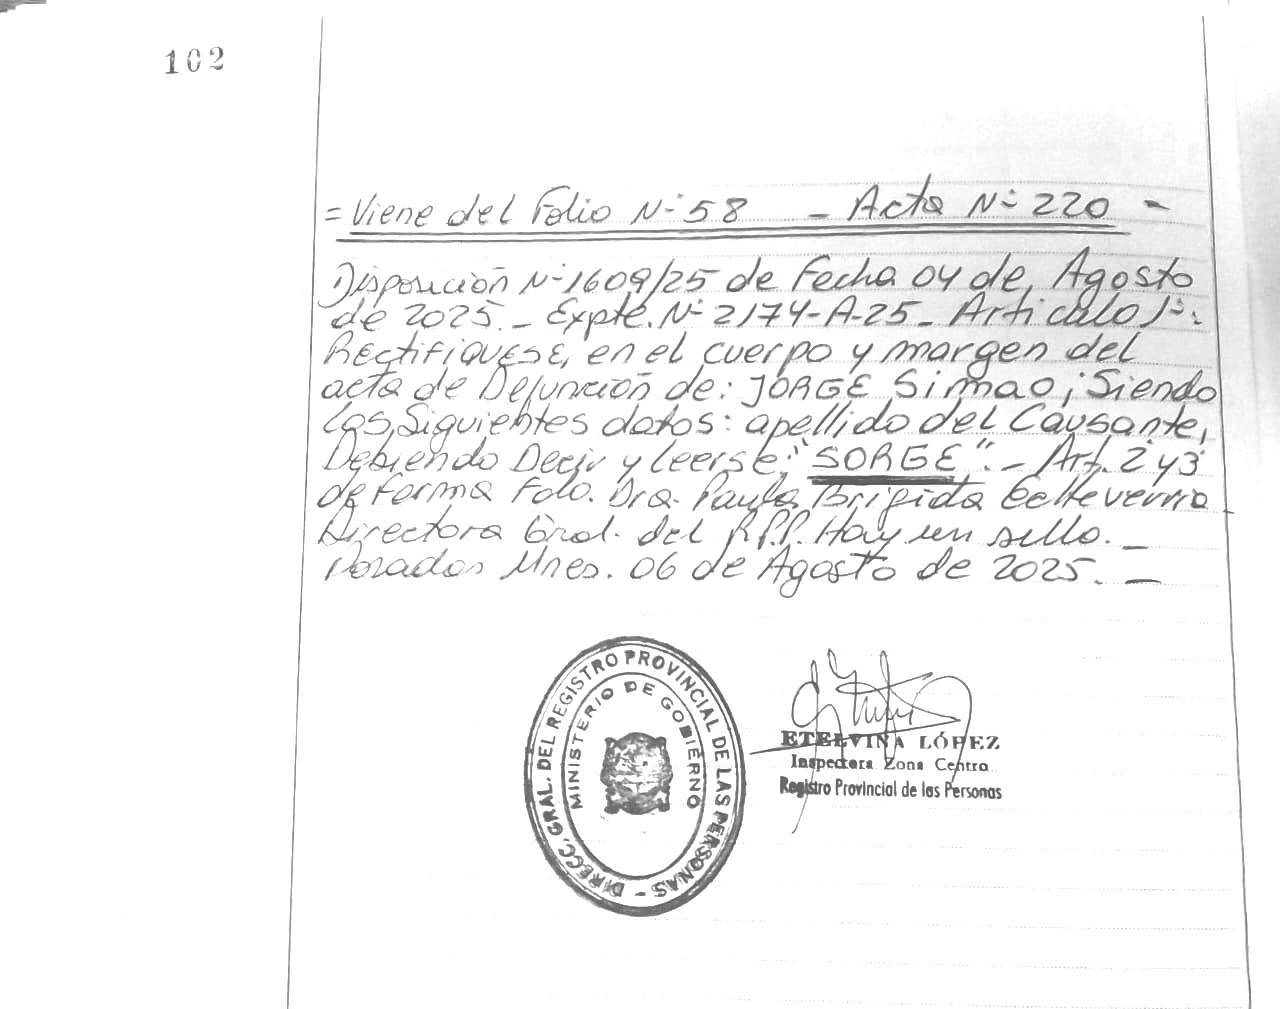 102
= Viene del Folio N° 58 - Acta N° 220 -
Disposición N° 1609/25 de Fecha 04 de Agosto
de 2025.- Expte. N° 2174-A-25- Articulo 1°:
Rectifiquese, en el cuerpo y margen del
acta de Defunción de: JORGE Simao; Siendo
los Siguientes datos: apellido del Causante,
Debiendo Decir y leerse: "SORGE".- Art. 2 y 3
de Forma Fdo. Dra. Paula Brigida Echeverria
Directora Gral. del R.P.P. Hay un sello. -
Posadas Mnes. 06 de Agosto de 2025. -
DIRECC. GRAL. DEL REGISTRO PROVINCIAL DE LAS PERSONAS -
MINISTERIO DE GOBIERNO
ETELVINA LÓPEZ
Inspectora Zona Centro
Registro Provincial de las Personas